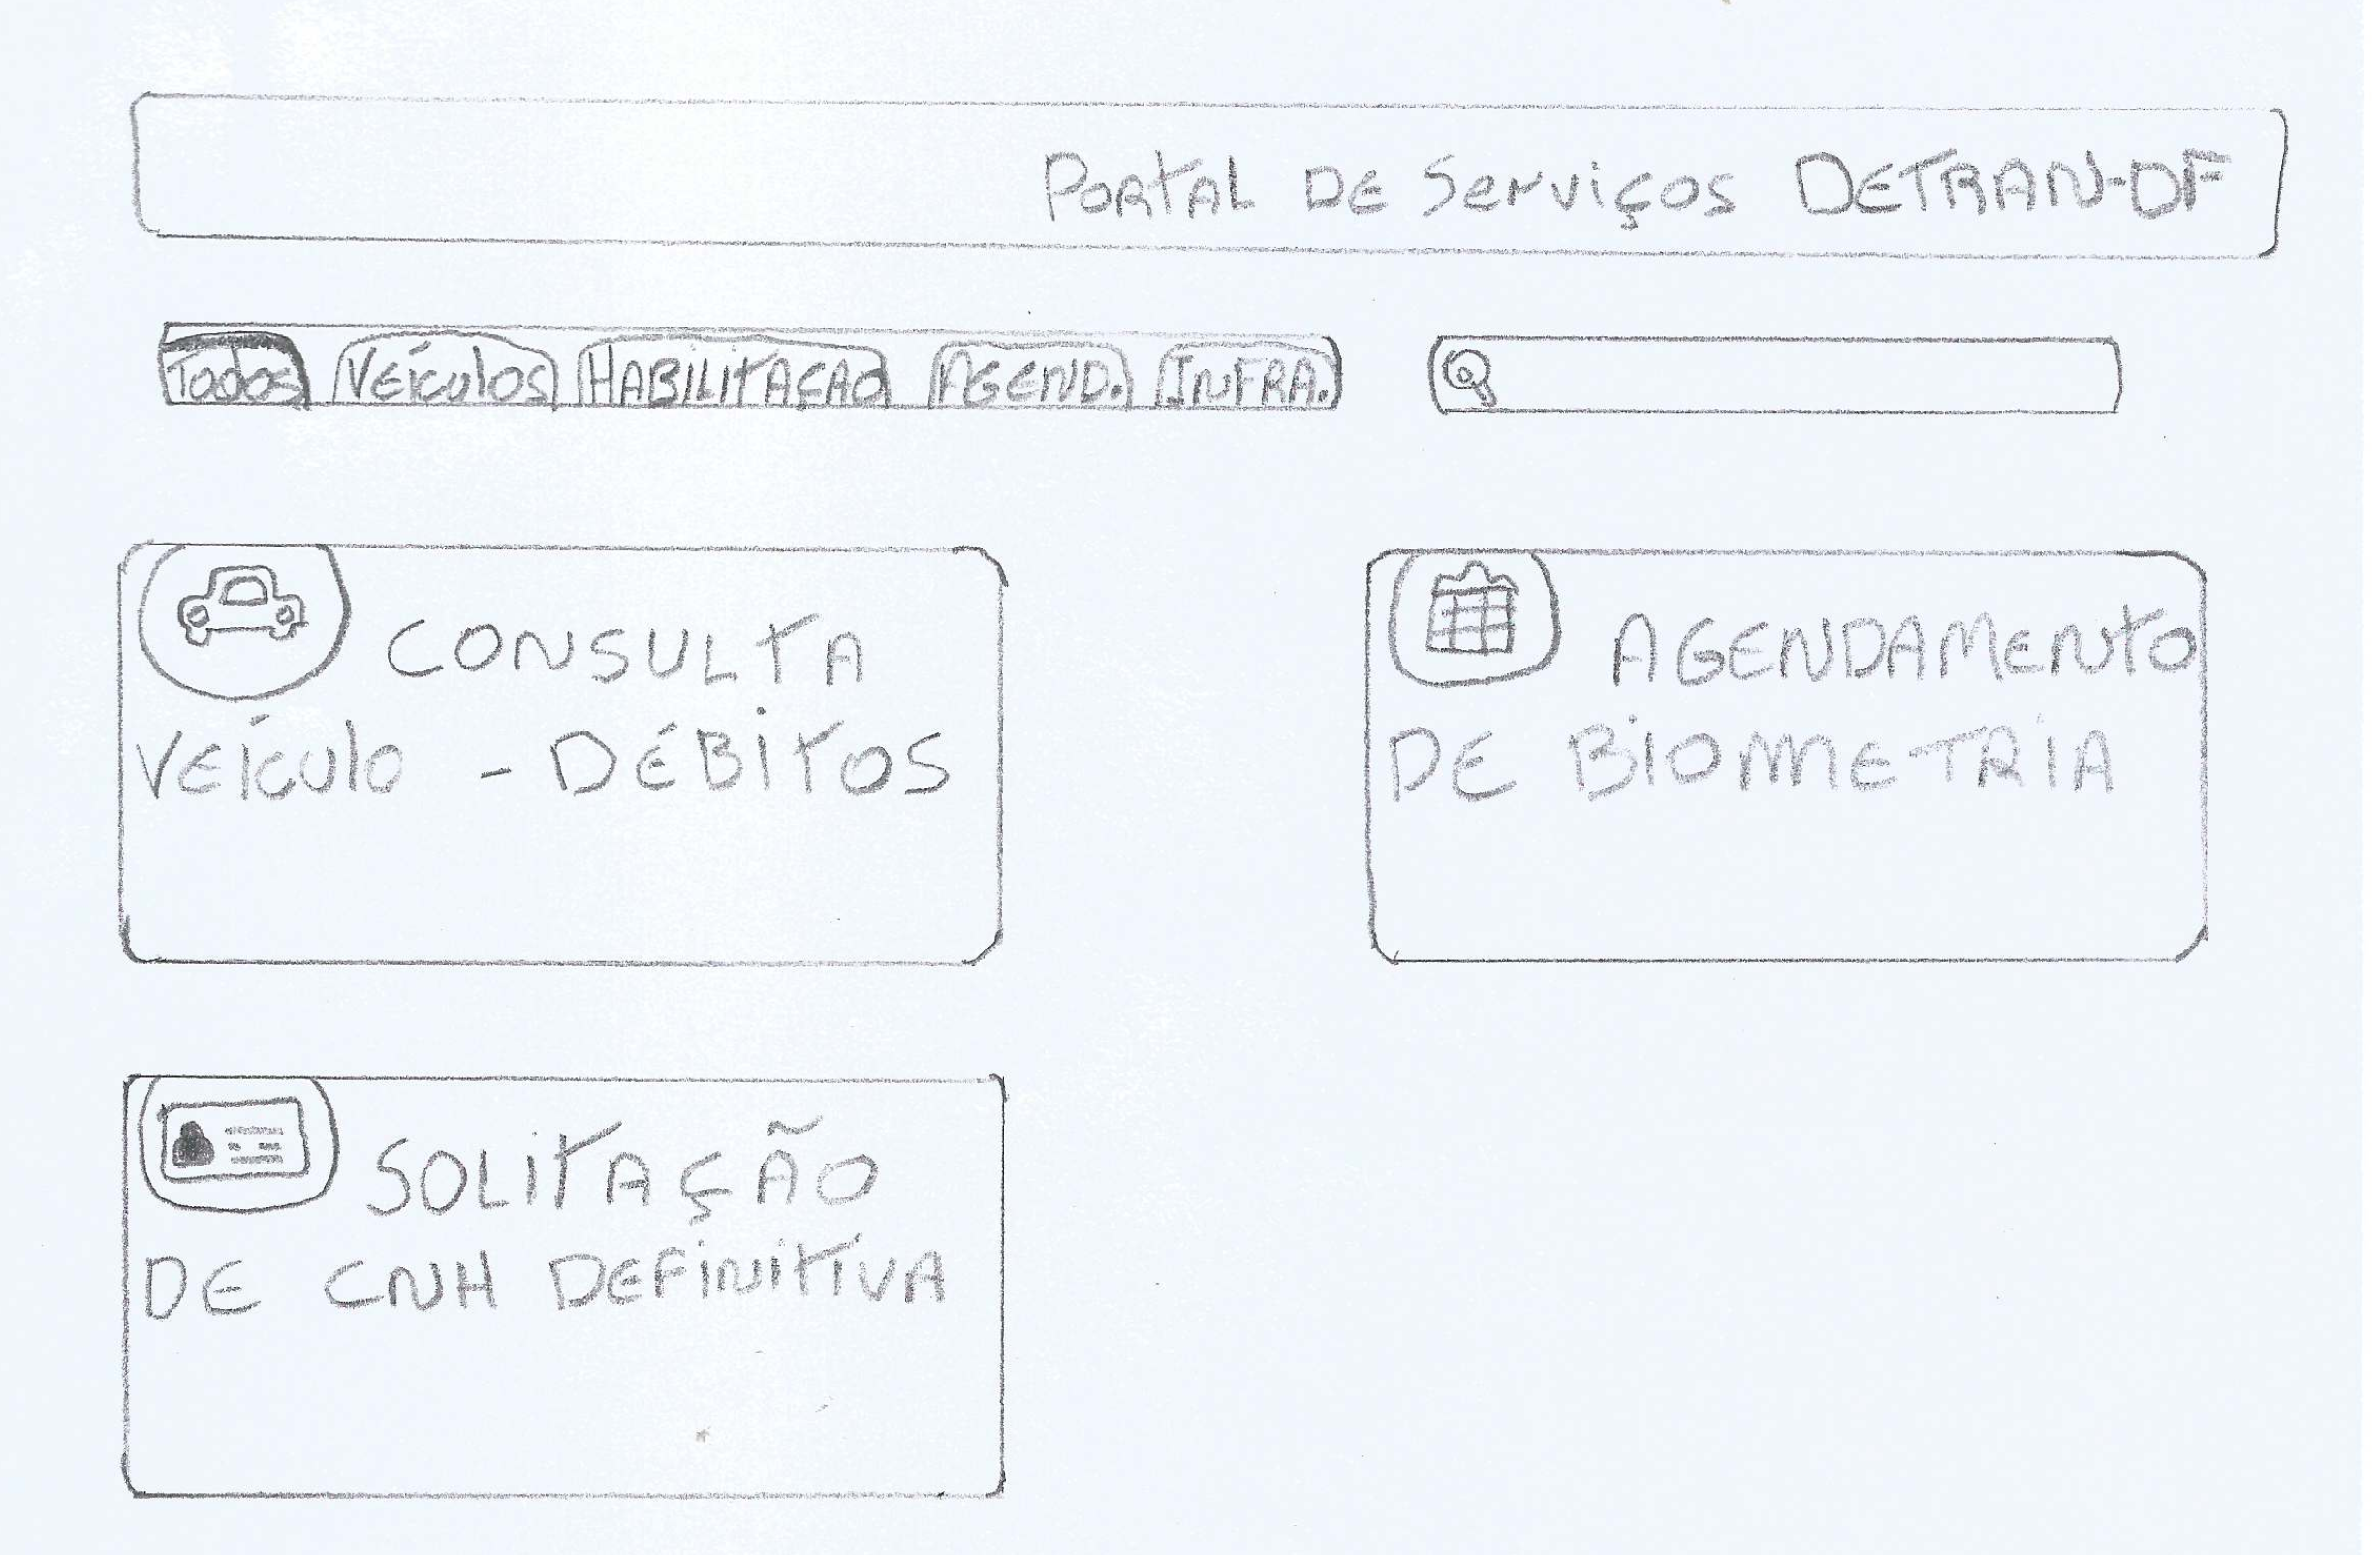 Portal de Serviços DETRAN-DF
Todos Veículos HABILITAÇAO AGEND. INFRA.
CONSULTA
VEículo - DÉBITOS
AGENDAMENTO
DE BIOMETRIA
SOLITAÇÃO
DE CNH DEFINITIVA